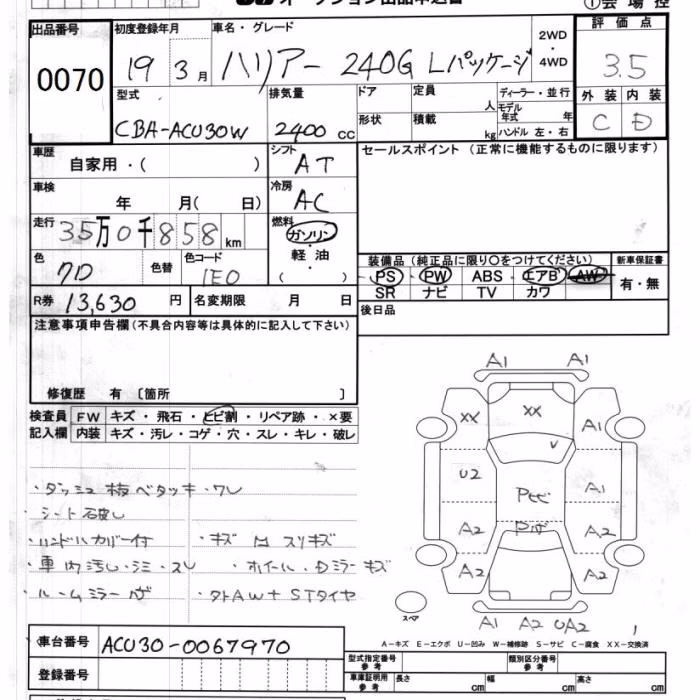 オークション出品申込書
①会場控
出品番号 0070
初度登録年月 19 3月
車名・グレード ハリアー 240G Lパッケージ
2WD・4WD
評価点 3.5
外装 内装
C D
型式 CBA-ACU30W
排気量 2400 cc
ドア 形状
定員 人
積載 kg
ディーラー・並行
モデル年式 年
ハンドル 左・右
車歴 自家用・( )
シフト AT
セールスポイント(正常に機能するものに限ります)
車検 年 月( 日)
冷房 AC
走行 35万0千858km
燃料 ガソリン・軽油・( )
色 クロ 色替
色コード 1E0
装備品(純正品に限り○をつけてください) 新車保証書
PS PW ABS エアB AW 有・無
SR ナビ TV カワ
R券 13,630円
名変期限 月 日
後日品
注意事項申告欄(不具合内容等は具体的に記入して下さい)
修復歴 有〔箇所 〕
検査員記入欄
FW キズ・飛石・ヒビ割・リペア跡・×要
内装 キズ・汚レ・コゲ・穴・スレ・キレ・破レ
A1 A1
XX XX A1
U2 A1
A2 A2
A2 A2
A1 A2
スペア
・ダッシュ板ベタツキ・ワレ
・シート破レ
・ハンドルカバー付 ・キズ スリキズ
・車内汚レ・シミ・スレ ・ホイール・Dミラーキズ
・ルームミラー ・タトAW+STタイヤ
A-キズ E-エクボ U-凹み W-補修跡 S-サビ C-腐食 XX-交換済
車台番号 ACU30-0067970
型式指定番号 参考
類別区分番号 参考
登録番号
車庫証明用 参考 長さ cm 幅 cm 高さ cm